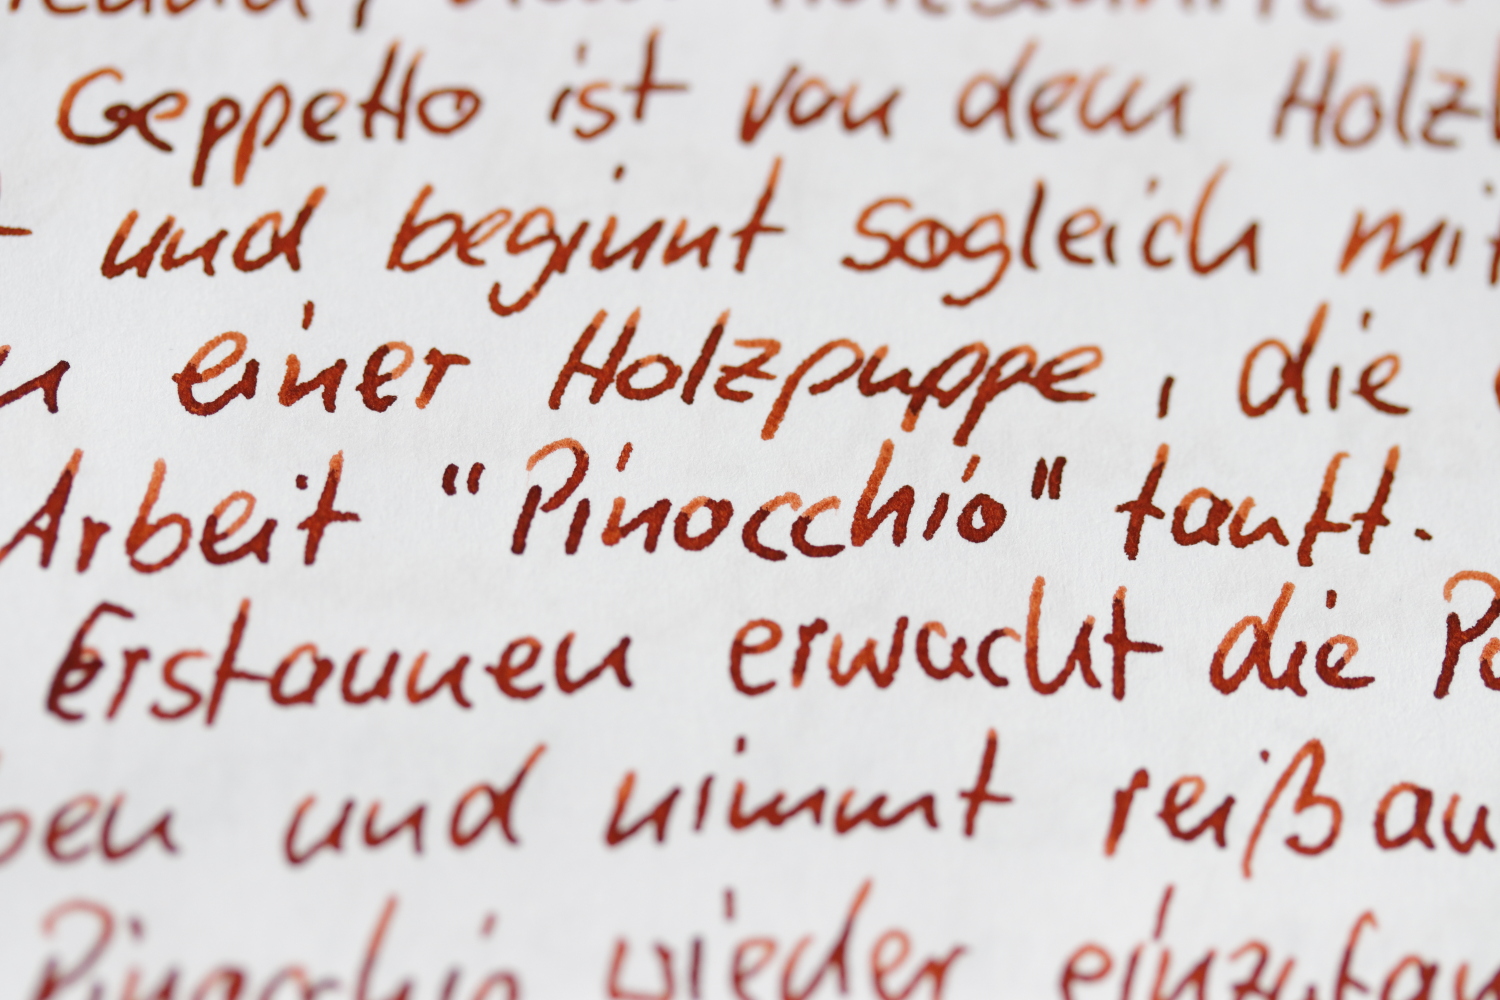 Geppetto ist von dem
und beginnt sogleich mit
einer Holzpuppe, die
Arbeit "Pinocchio" tauft.
Erstaunen erwacht die
und nimmt reißau
Pinocchio wieder